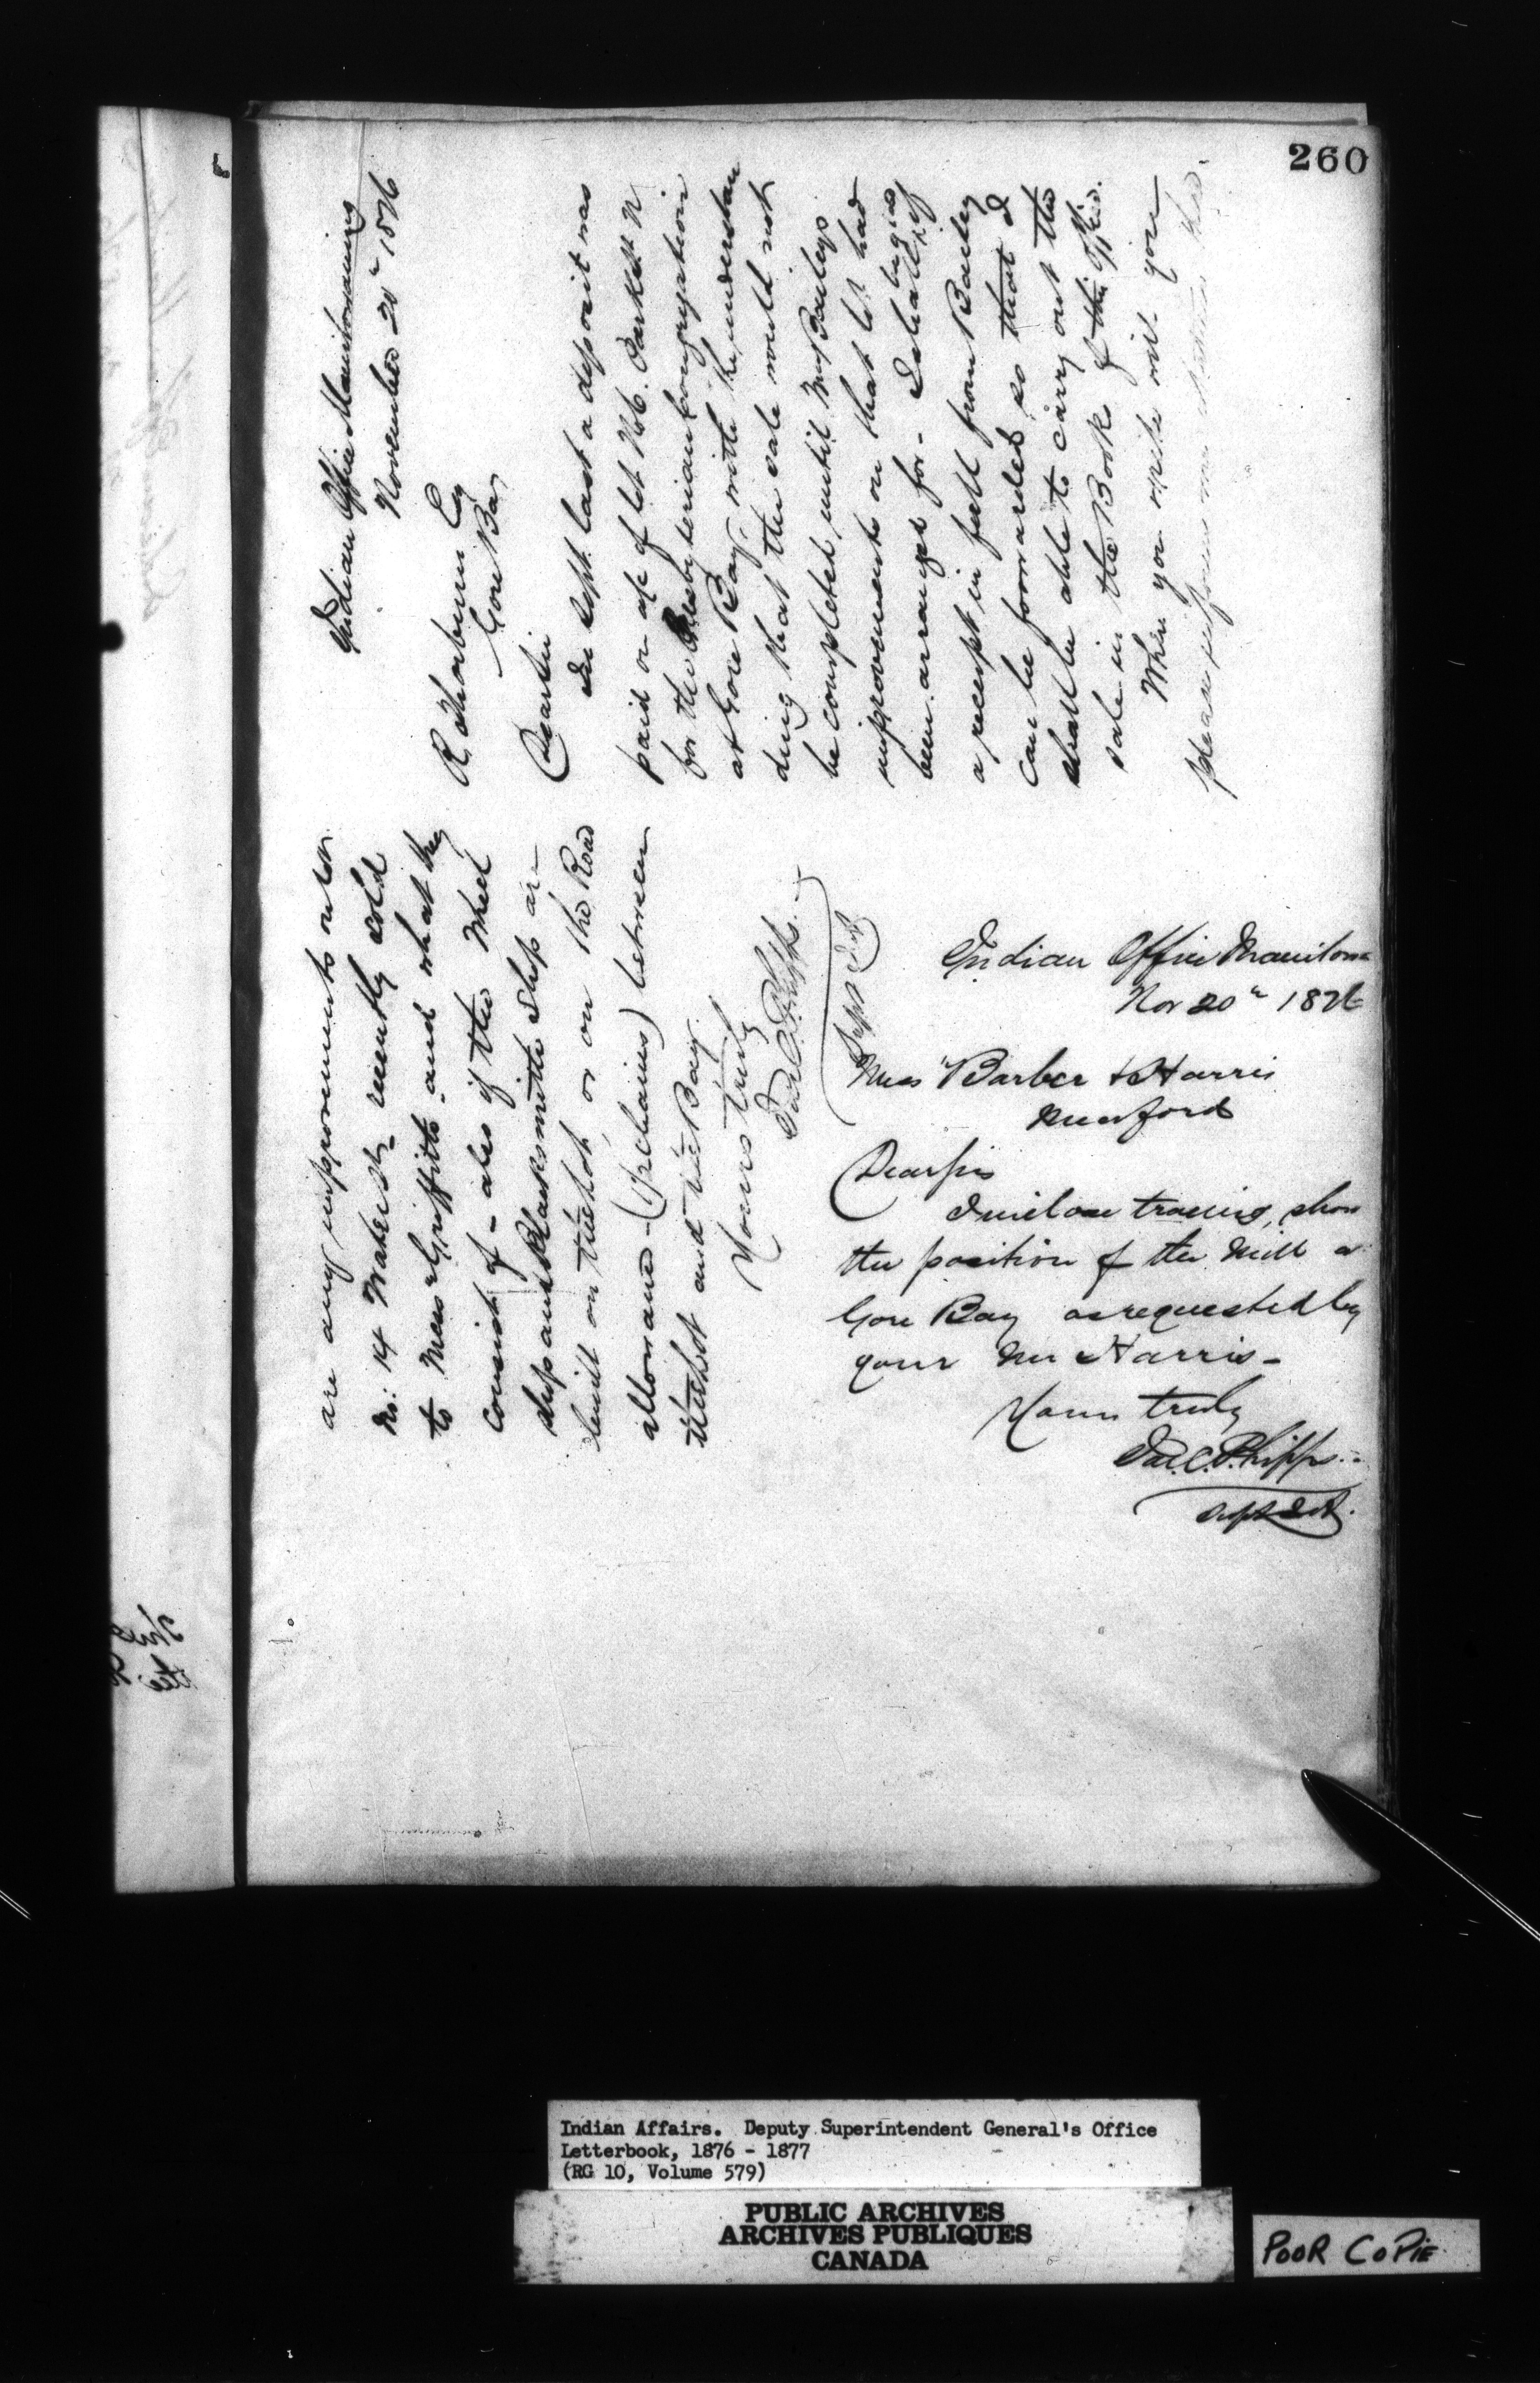 260
Indian Office Manitowaning
November 20th 1876
R Thorburn Esq
Gore Bay
Dear Sir
In Sept. last a deposit was
paid on a/c of lot No 6. Park St. N
for the Presbyterian Congregation
at Gore Bay, with the understan
ding that the sale would not
be completed until Mr Baileys
improvements on that lot had
been arranged for. I shall be glad if
a receipt in full from Bailey
can be forwarded so that I
shall be able to carry out the
sale in the Books of this Office.
When you write will you
please inform me whether there
are any improvements on lot
No: 14 Water St. recently sold
to Mess Griffith and what they
consist of - also if the Wheel
shop and Blacksmiths Shop are
built on the lot, or on the Road
allowance (2 chains) between
the lot and the Bay.
Yours truly
Jas. C. Phipps
Supt
Indian Office Manitow
Nov 20th 1876
Mess Barber & Harris
Meaford
Dear Sirs
I enclose tracing, show
the position of the Mill a
Gore Bay as requested by
your Mr Harris -
Yours truly
Jas. C. Phipps
Supt
Indian Affairs. Deputy Superintendent General's Office
Letterbook, 1876 - 1877
(RG 10, Volume 579)
PUBLIC ARCHIVES
ARCHIVES PUBLIQUES
CANADA
POOR COPIE